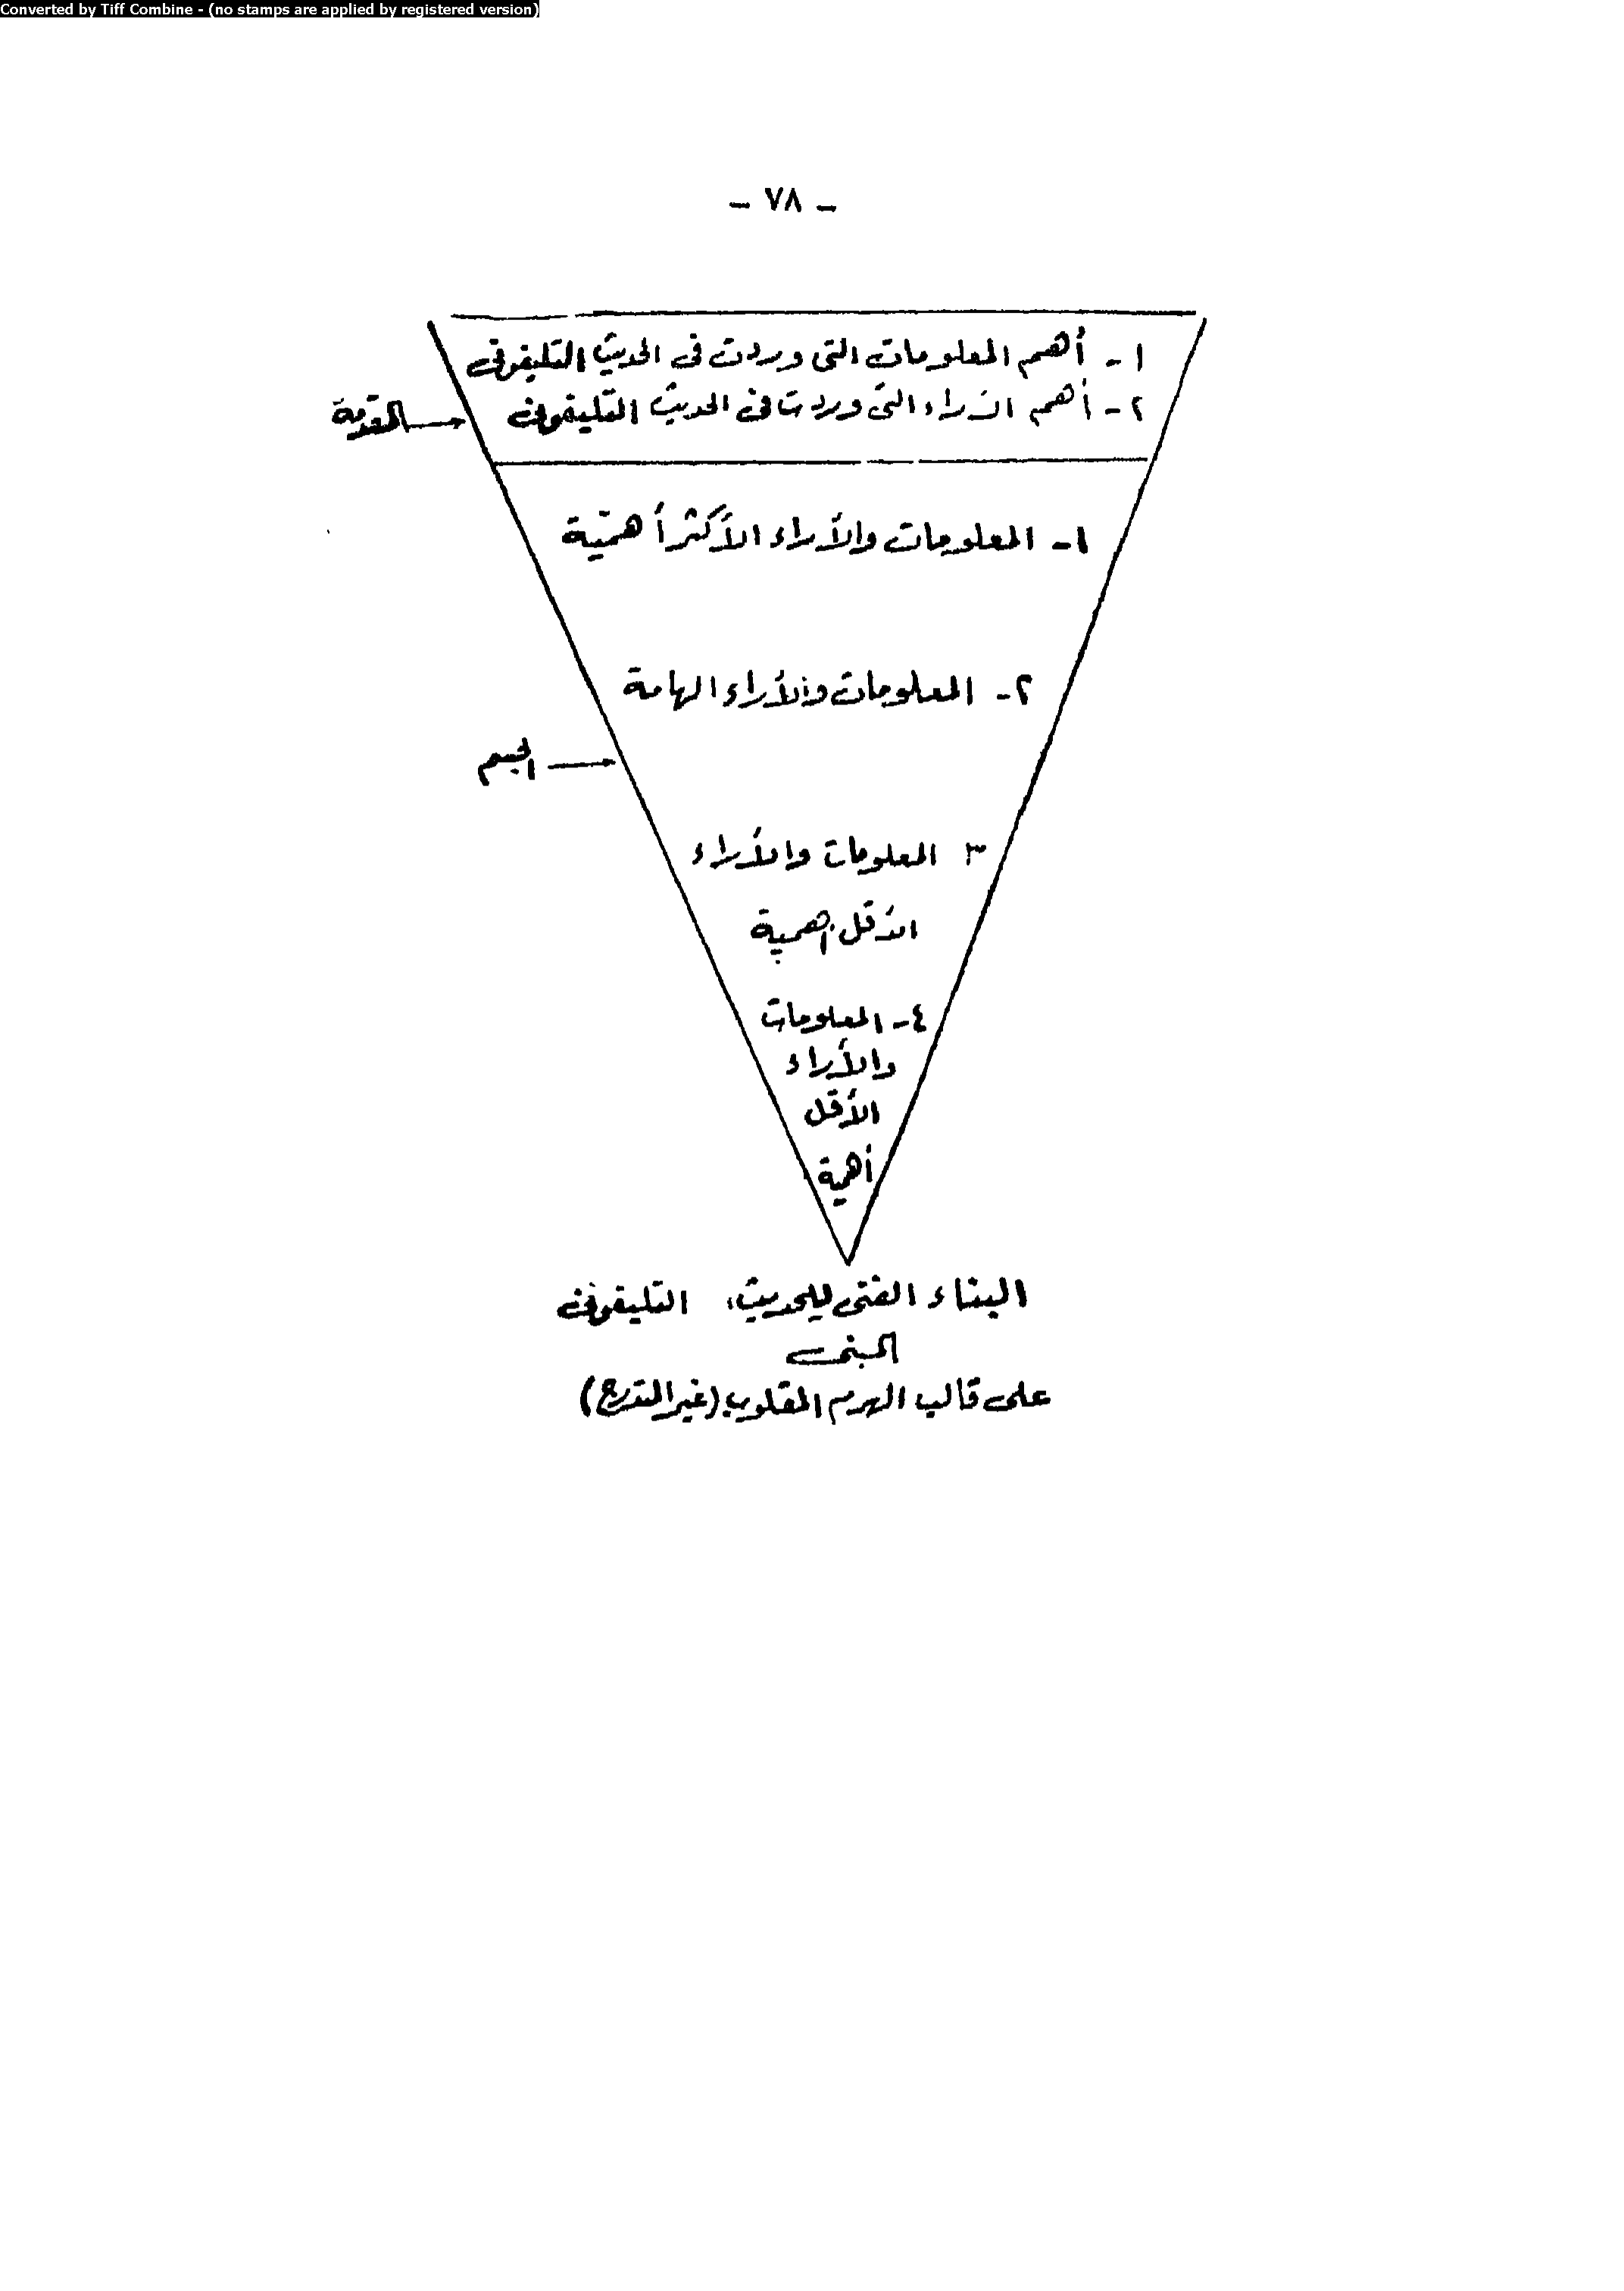 Converted by Tiff Combine - (no stamps are applied by registered version)
- ٧٨ -
١ - أهم المعلومات التى وردت فى الحديث التليفونى
٢ - أهم الآراء التى وردت فى الحديث التليفونى
المقدمة
١ - المعلومات والآراء الأكثر أهمية
٢ - المعلومات والآراء الهامة
الجسم
٣ المعلومات والآراء
الأقل أهمية
٤ - المعلومات
والآراء
الأقل
أهمية
البناء الفنى للحديث التليفونى
المبنى
على قالب الهرم المقلوب (غير المتدرج)